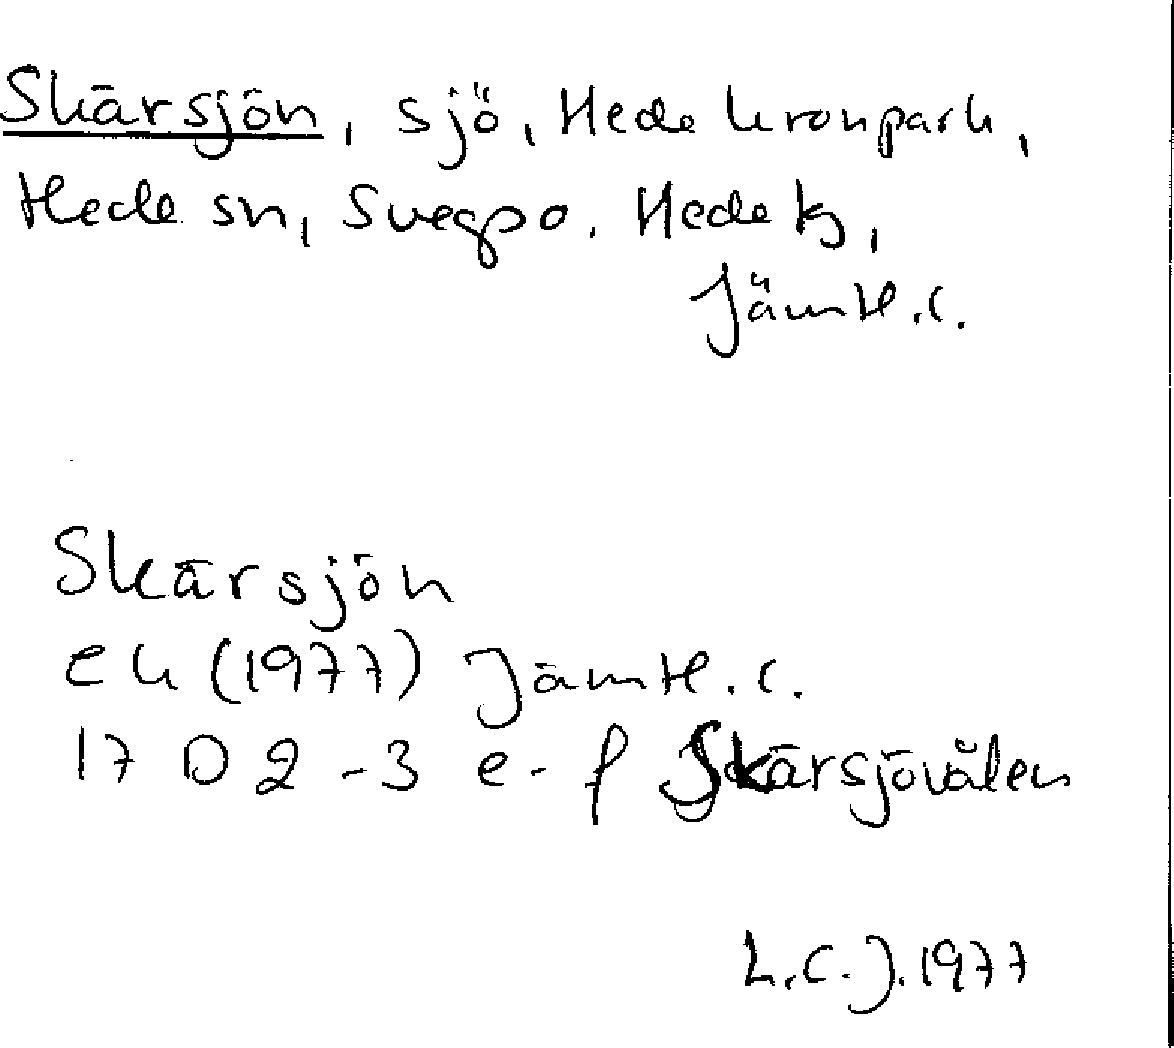 Skärsjön, sjö, Hede kronpark,
Hede sn, Svegs po. Hede tg,
Jämtl. l.
Skärsjön
ek (1977) Jämtl. l.
17 D 2-3 e-f Skärsjövålen
L.C.J. 1977